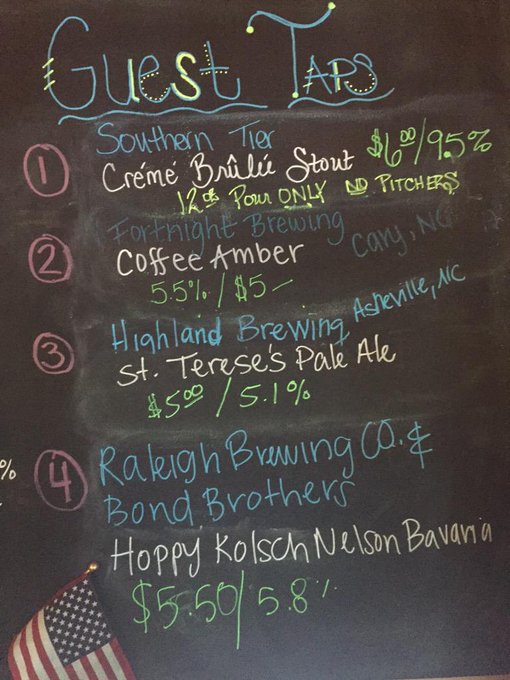 Guest Taps
1 Southern Tier $6.00/9.5%
Crémé Brûlée Stout
12oz Pour ONLY NO PITCHERS
2 Fortnight Brewing Cary, NC
Coffee Amber
5.5% / $5—
3 Highland Brewing Asheville, NC
St. Terese's Pale Ale
$5.00 / 5.1%
4 Raleigh Brewing CO. &
Bond Brothers
Hoppy Kolsch Nelson Bavaria
$5.50/ 5.8%
%